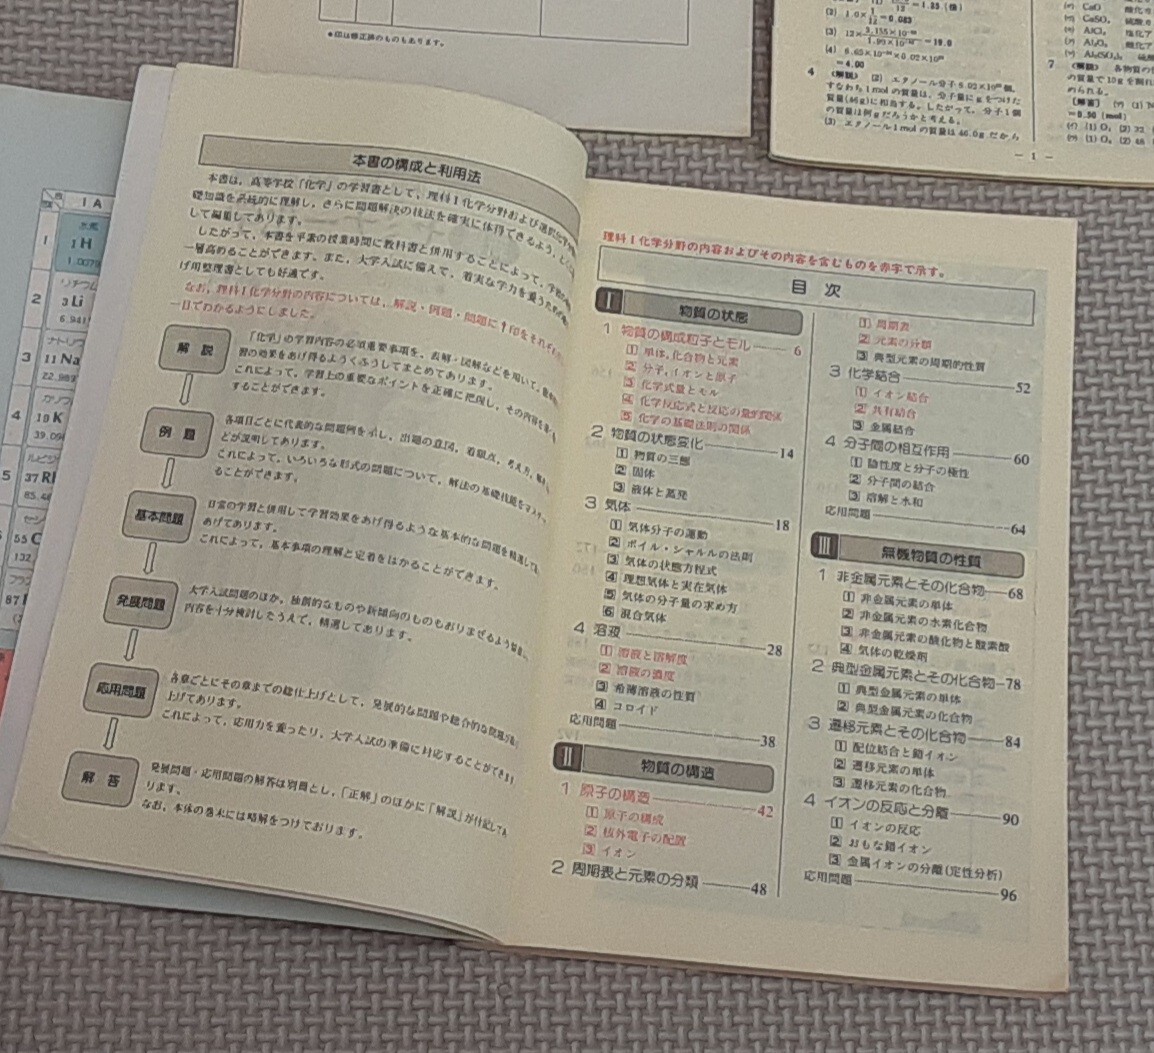 ●印は修正済のものもあります。
(2) 1.0×1/12=0.083
=4.00
4 〈解説〉 (2) エタノール分子6.02×10²³個,
すなわち1molの質量は、分子量にgをつけた
質量(46g)に相当する。したがって、分子1個
の質量は何gだろうかと考える。
(3) エタノール1molの質量は46.0gだから
CaO
CaSO₄
AlCl₃
Al₂O₃
Al₂(SO₄)₃
7 〈解説〉 各物質の
の質量で10gを割れ
められる。
=0.50 (mol)
― 1 ―
ⅠA
1
水素
1H
1.0079
2
リチウム
3Li
6.941
3
ナトリウ
11Na
22.989
4
カリウ
19K
39.098
5
ルビジ
37R
85.46
セシ
55C
132
フラン
87
本書の構成と利用法
本書は、高等学校「化学」の学習書として、理科Ⅰ化学分野および選択化学
礎知識を系統的に理解し、さらに問題解決の技法を確実に体得できるよう、
して編集してあります。
したがって、本書を平素の授業時間に教科書と併用することによって、学習
一層高めることができます。また、大学入試に備えて、着実な学力を養うため
げ用整理書としても好適です。
なお、理科Ⅰ化学分野の内容については、解説・例題・問題に↑印をそれぞれ
一目でわかるようにしました。
解説
「化学」の学習内容の必須重要事項を、表解・図解などを用いて、
習の効果をあげ得るようくふうしてまとめてあります。
これによって、学習上の重要なポイントを正確に把握し、その内容を
することができます。
例題
各項目ごとに代表的な問題例を示し、出題の意図、着眼点、考え方、
どが説明してあります。
これによって、いろいろな形式の問題について、解法の基礎技能をマスター
ることができます。
基本問題
日常の学習と併用して学習効果をあげ得るような基本的な問題を精選して、
あげてあります。
これによって、基本事項の理解と定着をはかることができます。
発展問題
大学入試問題のほか、独創的なものや新傾向のものもおりまぜるよう
内容を十分検討したうえで、精選してあります。
応用問題
各章ごとにその章までの総仕上げとして、発展的な問題や総合的な問題が
上げてあります。
これによって、応用力を養ったり、大学入試の準備に対応することができます
解答
発展問題・応用問題の解答は別冊とし、「正解」のほかに「解説」が付記してあ
ります。
なお、本体の巻末には略解をつけております。
理科Ⅰ化学分野の内容およびその内容を含むものを赤字で示す。
目次
Ⅰ 物質の状態
1 物質の構成粒子とモル 6
① 単体,化合物と元素
② 分子,イオンと原子
③ 化学式量とモル
④ 化学反応式と反応の量的関係
⑤ 化学の基礎法則の関係
2 物質の状態変化 14
① 物質の三態
② 固体
③ 液体と蒸発
3 気体 18
① 気体分子の運動
② ボイル・シャルルの法則
③ 気体の状態方程式
④ 理想気体と実在気体
⑤ 気体の分子量の求め方
⑥ 混合気体
4 溶液 28
① 溶液と溶解度
② 溶液の濃度
③ 希薄溶液の性質
④ コロイド
応用問題 38
Ⅱ 物質の構造
1 原子の構造 42
① 原子の構成
② 核外電子の配置
③ イオン
2 周期表と元素の分類 48
① 周期表
② 元素の分類
③ 典型元素の周期的性質
3 化学結合 52
① イオン結合
② 共有結合
③ 金属結合
4 分子間の相互作用 60
① 陰性度と分子の極性
② 分子間の結合
③ 溶解と水和
応用問題 64
Ⅲ 無機物質の性質
1 非金属元素とその化合物 68
① 非金属元素の単体
② 非金属元素の水素化合物
③ 非金属元素の酸化物と酸素酸
④ 気体の乾燥剤
2 典型金属元素とその化合物 78
① 典型金属元素の単体
② 典型金属元素の化合物
3 遷移元素とその化合物 84
① 配位結合と錯イオン
② 遷移元素の単体
③ 遷移元素の化合物
4 イオンの反応と分離 90
① イオンの反応
② おもな錯イオン
③ 金属イオンの分離(定性分析)
応用問題 96